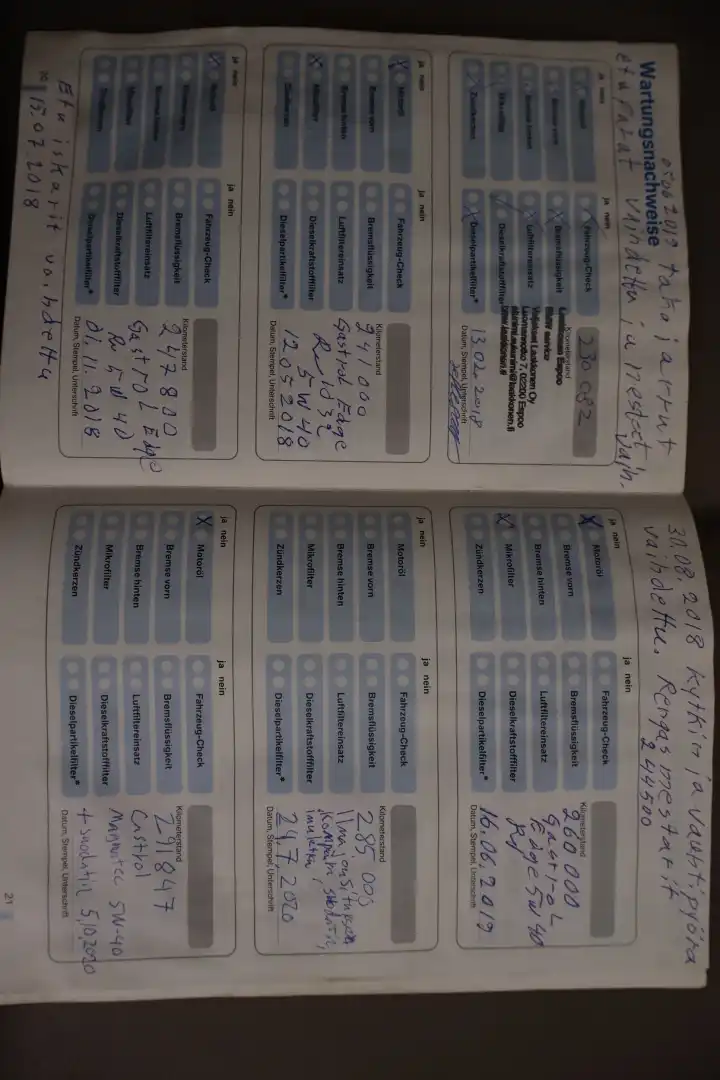 Wartungsnachweise
05.06 2018 takajarrut
etupalat vaihdettu ja nesteet vaih-
ja nein
Motoröl
Bremse vorn
Bremse hinten
Mikrofilter
Zündkerzen
ja nein
Fahrzeug-Check
Bremsflüssigkeit
Luftfiltereinsatz
Dieselkraftstofffilter
Dieselpartikelfilter*
Kilometerstand
230 082
Laakkonen Espoo
BMW service
Veljekset Laakkonen Oy
Luomannotko 7, 02200 Espoo
13 02 2018
Datum, Stempel, Unterschrift
ja nein
X Motoröl
Bremse vorn
Bremse hinten
X Mikrofilter
Zündkerzen
ja nein
Fahrzeug-Check
Bremsflüssigkeit
Luftfiltereinsatz
Dieselkraftstofffilter
Dieselpartikelfilter*
Kilometerstand
241 000
Gastrol Edge
5W40
12 05 2018
Datum, Stempel, Unterschrift
ja nein
X Motoröl
Bremse vorn
Bremse hinten
Mikrofilter
Zündkerzen
ja nein
Fahrzeug-Check
Bremsflüssigkeit
Luftfiltereinsatz
Dieselkraftstofffilter
Dieselpartikelfilter*
Kilometerstand
247800
Gastrol Edge
5W 40
01.11.2018
Datum, Stempel, Unterschrift
Etu iskarit vaihdettu
15.07 2018
20
30.08.2018 Kytkin ja vauhtipyörä
vaihdettu. Rengasmestarit
244500
ja nein
X Motoröl
Bremse vorn
Bremse hinten
X Mikrofilter
Zündkerzen
ja nein
Fahrzeug-Check
Bremsflüssigkeit
Luftfiltereinsatz
Dieselkraftstofffilter
Dieselpartikelfilter*
Kilometerstand
260 000
Gastrol
Edge 5W 40
16.06.2019
Datum, Stempel, Unterschrift
ja nein
Motoröl
Bremse vorn
Bremse hinten
Mikrofilter
Zündkerzen
ja nein
Fahrzeug-Check
Bremsflüssigkeit
Luftfiltereinsatz
Dieselkraftstofffilter
Dieselpartikelfilter*
Kilometerstand
285 000
24.7.2020
Datum, Stempel, Unterschrift
ja nein
X Motoröl
Bremse vorn
Bremse hinten
Mikrofilter
Zündkerzen
ja nein
Fahrzeug-Check
Bremsflüssigkeit
Luftfiltereinsatz
Dieselkraftstofffilter
Dieselpartikelfilter*
Kilometerstand
291847
Castrol
Magnatec 5W-40
+ suodatin 5.10.2020
Datum, Stempel, Unterschrift
21